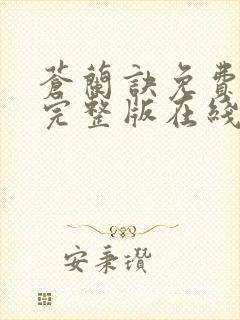 蒼蘭訣免費
完整版在綫
安秉瓚